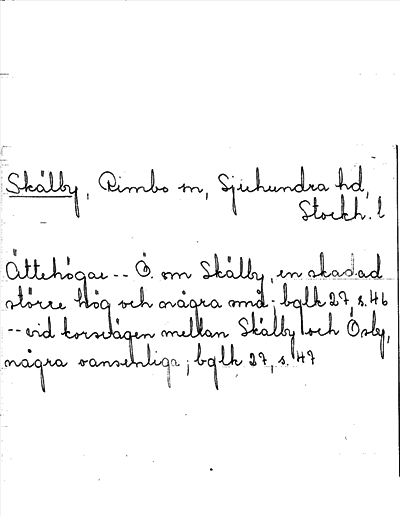 Skálby, Rimbo sn, Sjuhundra hd,
Stockh. l
Ättehögar -- Ö. om Skálby, en skadad
större hög och några små; bglk 27 s. 46
-- vid korsvägen mellan Skálby och Ösby,
några vansenliga; bglk 27, s. 47